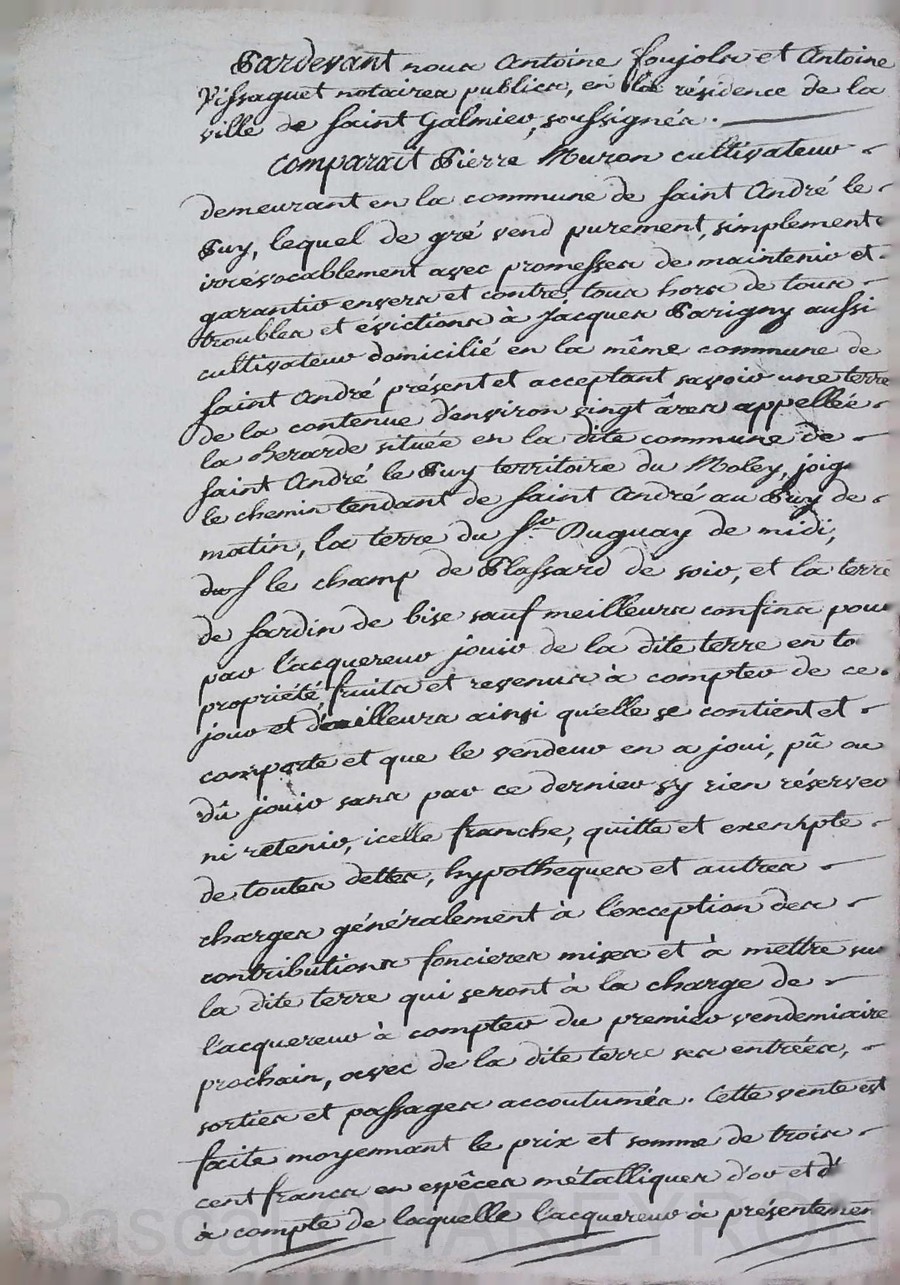 Pardevant nous Antoine foujols et Antoine
Pissaguet notaires publics, en la résidence de la
ville de Saint Galmier, soussignés.
Comparait Pierre Muron cultivateur
demeurant en la commune de Saint André le
Puy, lequel de gré vend purement, simplement
irrévocablement avec promesses de maintenir et
garantir envers et contre tous hors de tous
troubles et évictions à Jacques Parigny aussi
cultivateur domicilié en la même commune de
Saint André présent et acceptant savoir une terre
de la contenue d'environ vingt âres appellée
la Berarde située en la dite commune de
Saint André le Puy territoire du Moley, joig
le chemin tendant de Saint André au Puy de
matin, la terre du Sr. Duguay de midi,
du S le champ de Plassard de soir, et la terre
de Jardin de bise sauf meilleurs confins pour
par l'acquereur jouir de la dite terre en to
propriété, fruits et revenus à compter de ce
jour et d'ailleurs ainsi qu'elle se contient et
comporte et que le vendeur en a joui, pû ou
dû jouir sans par ce dernier s'y rien réserver
ni retenir, icelle franche, quitte et exempte
de toutes dettes, hypotheques et autres
charges généralement à l'exception des
contributions foncieres mises et à mettre sur
la dite terre qui seront à la charge de
l'acquereur à compter du premier vendemiaire
prochain, avec de la dite terre ses entrées,
sorties et passages accoutumés. Cette vente est
faite moyennant le prix et somme de trois
cent francs en espêces métalliques d'or et d'
à compte de laquelle l'acquereur à présentemen
Pascal CHAREYRON